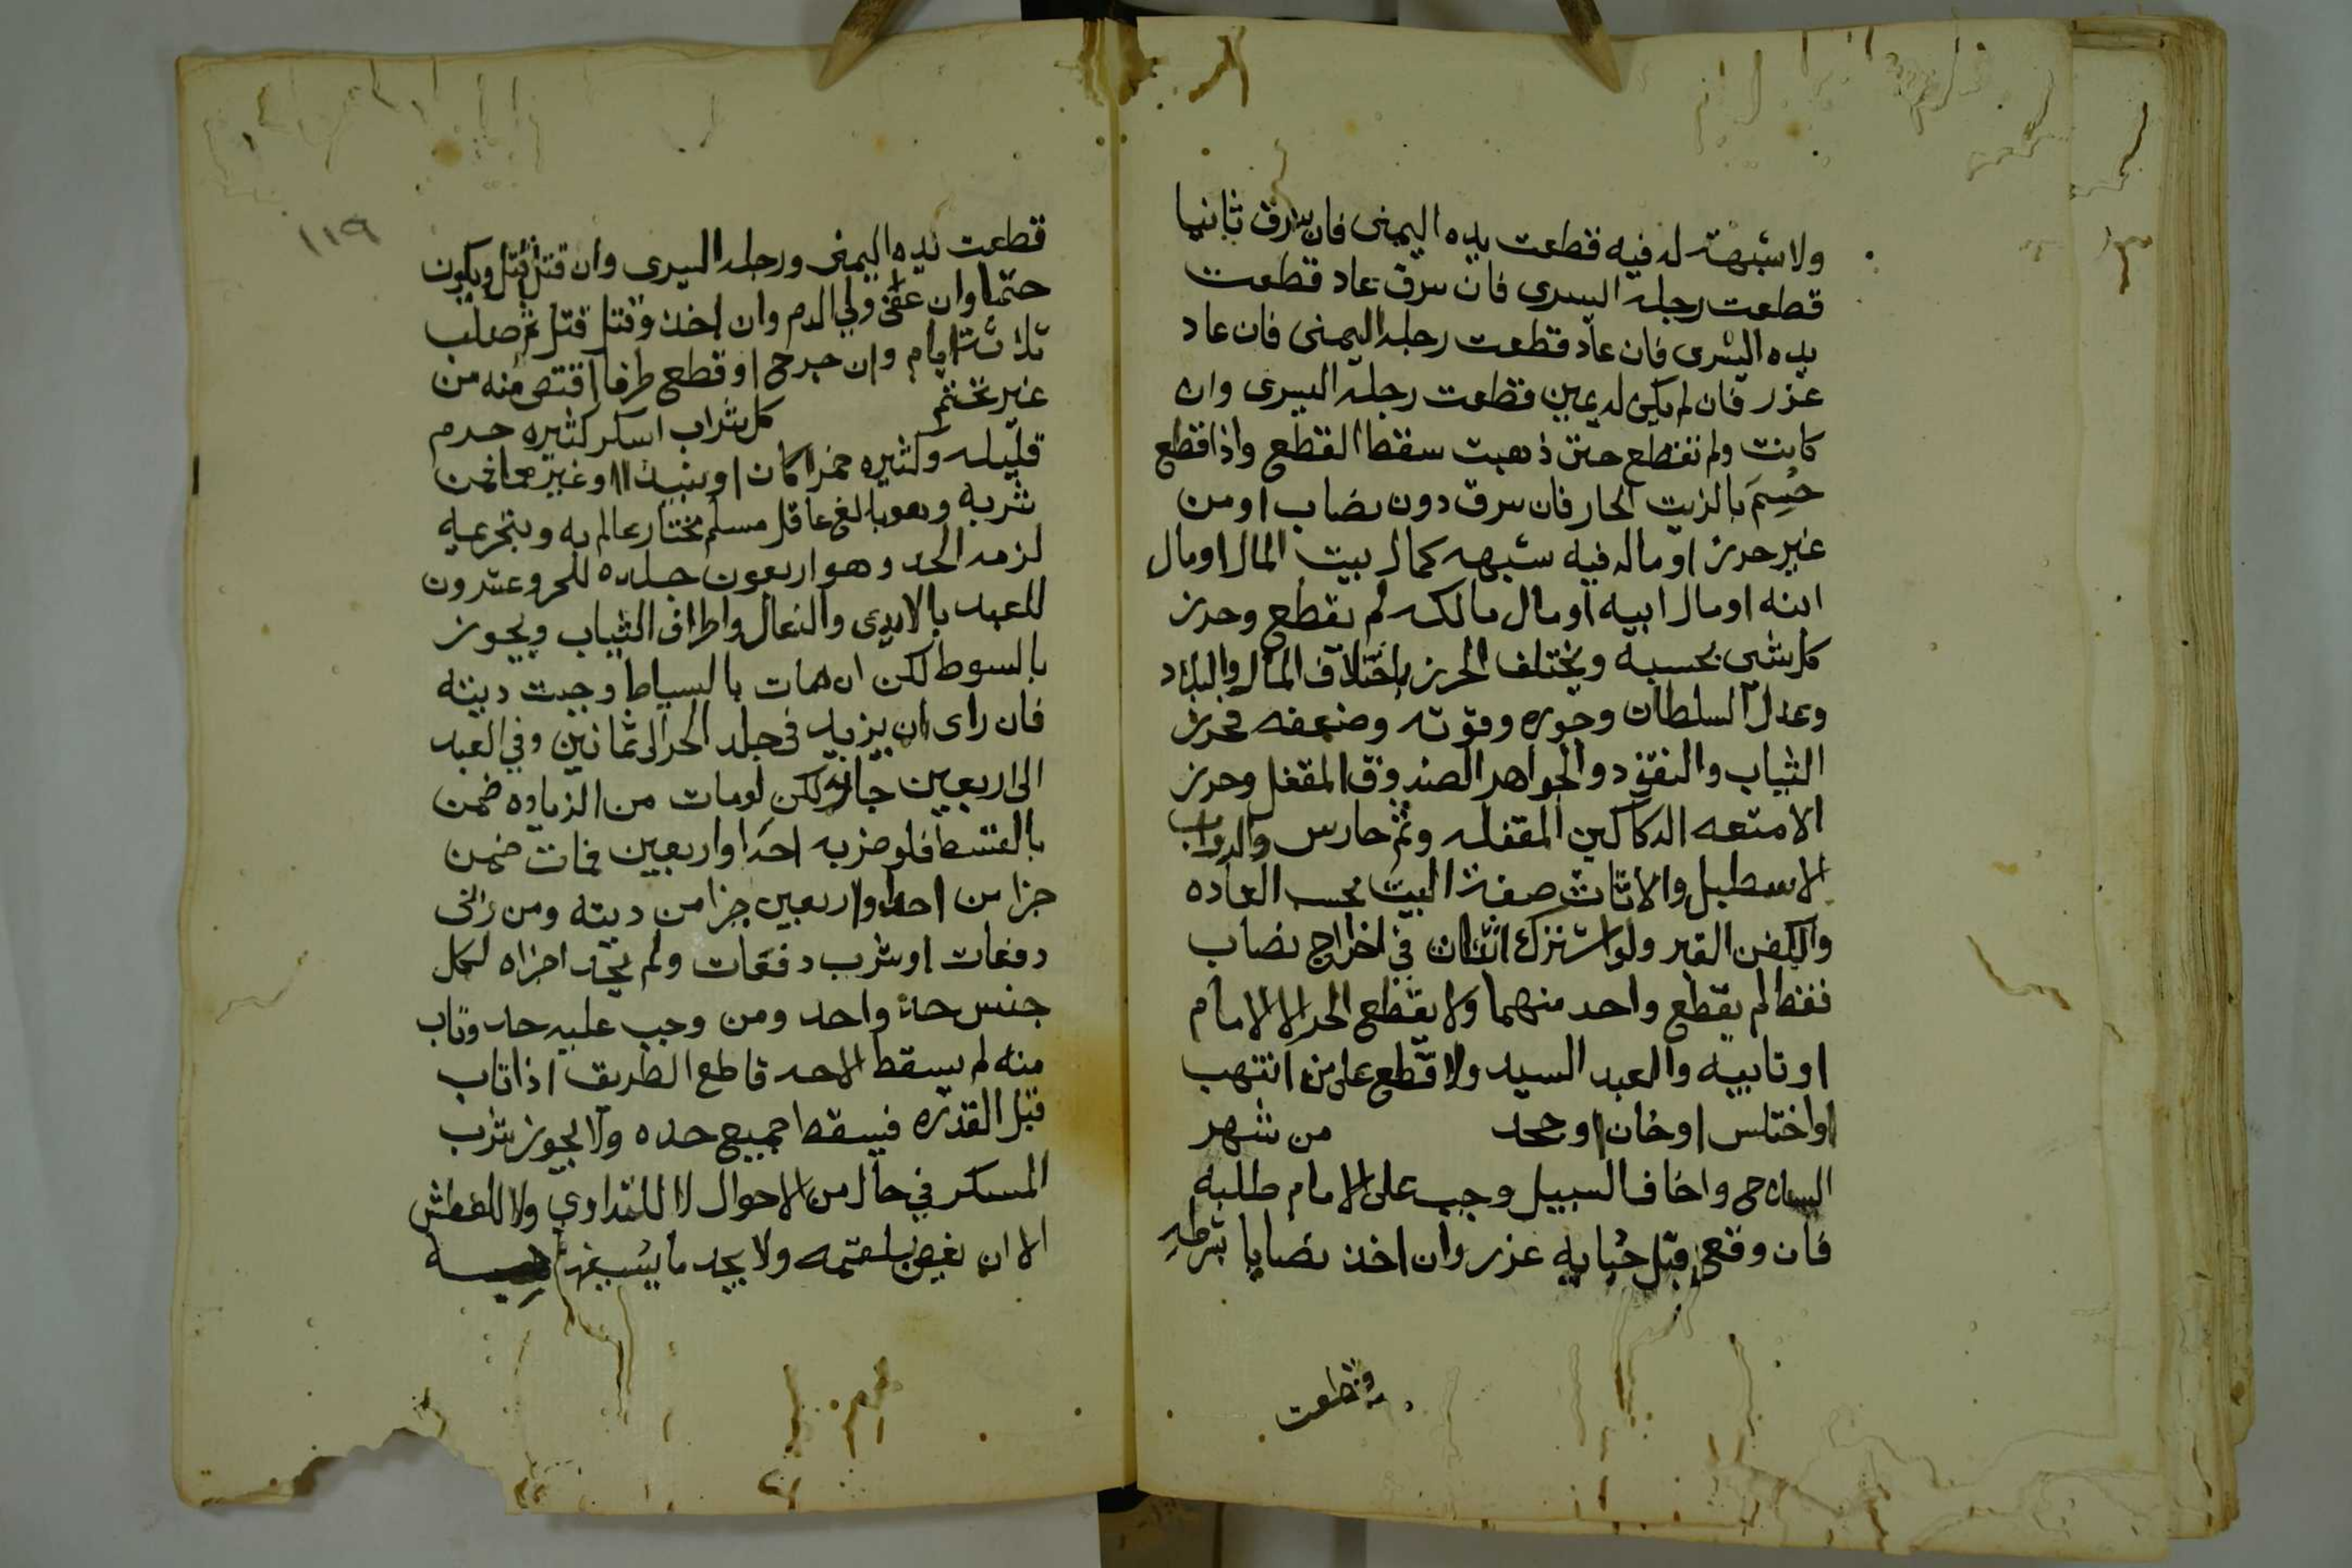 ولا شبهة له فيه قطعت يده اليمنى فان سرق ثانيا
قطعت رجله اليسرى فان سرق عاد قطعت
يده اليسرى فان عاد قطعت رجله اليمنى فان عاد
عزر فان لم يكن له يمين قطعت رجله اليسرى وان
كانت ولم تقطع حتى ذهبت سقط القطع واذا قطع
حُسِمَ بالزيت الحار فان سرق دون نصاب او من
غير حرز او ماله فيه شبهه كمال بيت المال او مال
ابنه او مال ابيه او مال مالكه لم يقطع وحرز
كل شي بحسبه ويختلف الحرز باختلاف المال والبلاد
وعدل السلطان وجوره وقوته وضعفه فحرز
الثياب والنقود والجواهر الصندوق المقفل وحرز
الامتعه الدكاكين المقفله وثم حارس والدواب
الاسطبل والاثاث صفة البيت بحسب العاده
والكفن القبر ولو اشترك اثنان في اخراج نصاب
فقط لم يقطع واحد منهما ولا يقطع الحر الا الامام
او نايبه والعبد السيد ولا قطع على من انتهب
او اختلس او خان او جحد من شهر
السلاح واخاف السبيل وجب على الامام طلبه
فان وقع قبل جنايه عزر وان اخذ نصابا بشرطه
وقطعت
١١٩
قطعت يده اليمنى ورجله اليسرى وان قتل قتل ويكون
حتما وان عفى ولي الدم وان اخذ وقتل قتل ثم صلب
ثلاثة ايام وان جرح او قطع طرفا اقتص منه من
غير تحتم كل شراب اسكر كثيره حرم
قليله وكثيره خمرا كان او نبيذا او غيرهما فمن
شربه وهو بالغ عاقل مسلم مختار عالم به وبتحريمه
لزمه الحد وهو اربعون جلده للحر وعشرون
للعبد بالايدي والنعال واطراف الثياب ويجوز
بالسوط لكن ان مات بالسياط وجبت ديته
فان راى ان يزيد في جلد الحر الى ثمانين وفي العبد
الى اربعين جاز لكن لو مات من الزياده ضمن
بالقسط فلو ضربه احدا واربعين فمات ضمن
جزا من احد واربعين جزا من ديته ومن زنى
دفعات او شرب دفعات ولم يحد اجزاه لكل
جنس حد واحد ومن وجب عليه حد وتاب
منه لم يسقط الا حد قاطع الطريق اذا تاب
قبل القدره فيسقط جميع حده ولا يجوز شرب
المسكر في حال من الاحوال لا للتداوي ولا للعطش
الا ان يغص بلقمه ولا يجد ما يسيغها